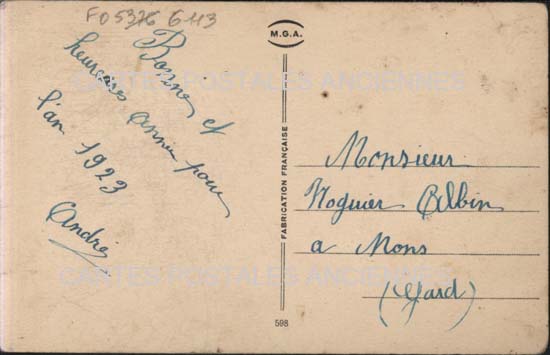 FO 5376 G 113
Bonne et
heureuse année pour
l'an 1923
André
M.G.A.
FABRICATION FRANÇAISE
Monsieur
Noguier Albin
a Mons
(Gard)
598
CARTES POSTALES ANCIENNES
CARTES POSTALES ANCIENNES